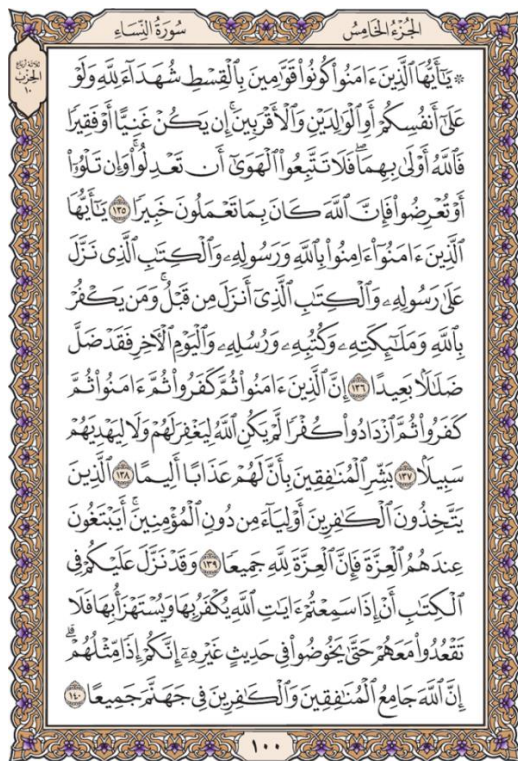 الجُزْءُ الخَامِسُ
سُورَةُ النِّسَاءِ
ثلاثة أرباع
الحزب
١٠
۞ يَٰٓأَيُّهَا ٱلَّذِينَ ءَامَنُواْ كُونُواْ قَوَّٰمِينَ بِٱلْقِسْطِ شُهَدَآءَ لِلَّهِ وَلَوْ
عَلَىٰٓ أَنفُسِكُمْ أَوِ ٱلْوَٰلِدَيْنِ وَٱلْأَقْرَبِينَۚ إِن يَكُنْ غَنِيًّا أَوْ فَقِيرًا
فَٱللَّهُ أَوْلَىٰ بِهِمَاۖ فَلَا تَتَّبِعُواْ ٱلْهَوَىٰٓ أَن تَعْدِلُواْۚ وَإِن تَلْوُۥٓاْ
أَوْ تُعْرِضُواْ فَإِنَّ ٱللَّهَ كَانَ بِمَا تَعْمَلُونَ خَبِيرًا ١٣٥ يَٰٓأَيُّهَا
ٱلَّذِينَ ءَامَنُوٓاْ ءَامِنُواْ بِٱللَّهِ وَرَسُولِهِۦ وَٱلْكِتَٰبِ ٱلَّذِى نَزَّلَ
عَلَىٰ رَسُولِهِۦ وَٱلْكِتَٰبِ ٱلَّذِىٓ أَنزَلَ مِن قَبْلُۚ وَمَن يَكْفُرْ
بِٱللَّهِ وَمَلَٰٓئِكَتِهِۦ وَكُتُبِهِۦ وَرُسُلِهِۦ وَٱلْيَوْمِ ٱلْءَاخِرِ فَقَدْ ضَلَّ
ضَلَٰلًۢا بَعِيدًا ١٣٦ إِنَّ ٱلَّذِينَ ءَامَنُواْ ثُمَّ كَفَرُواْ ثُمَّ ءَامَنُواْ ثُمَّ
كَفَرُواْ ثُمَّ ٱزْدَادُواْ كُفْرًا لَّمْ يَكُنِ ٱللَّهُ لِيَغْفِرَ لَهُمْ وَلَا لِيَهْدِيَهُمْ
سَبِيلًۢا ١٣٧ بَشِّرِ ٱلْمُنَٰفِقِينَ بِأَنَّ لَهُمْ عَذَابًا أَلِيمًا ١٣٨ ٱلَّذِينَ
يَتَّخِذُونَ ٱلْكَٰفِرِينَ أَوْلِيَآءَ مِن دُونِ ٱلْمُؤْمِنِينَۚ أَيَبْتَغُونَ
عِندَهُمُ ٱلْعِزَّةَ فَإِنَّ ٱلْعِزَّةَ لِلَّهِ جَمِيعًا ١٣٩ وَقَدْ نَزَّلَ عَلَيْكُمْ فِى
ٱلْكِتَٰبِ أَنْ إِذَا سَمِعْتُمْ ءَايَٰتِ ٱللَّهِ يُكْفَرُ بِهَا وَيُسْتَهْزَأُ بِهَا فَلَا
تَقْعُدُواْ مَعَهُمْ حَتَّىٰ يَخُوضُواْ فِى حَدِيثٍ غَيْرِهِۦٓ إِنَّكُمْ إِذًا مِّثْلُهُمْۗ
إِنَّ ٱللَّهَ جَامِعُ ٱلْمُنَٰفِقِينَ وَٱلْكَٰفِرِينَ فِى جَهَنَّمَ جَمِيعًا ١٤٠
١٠٠